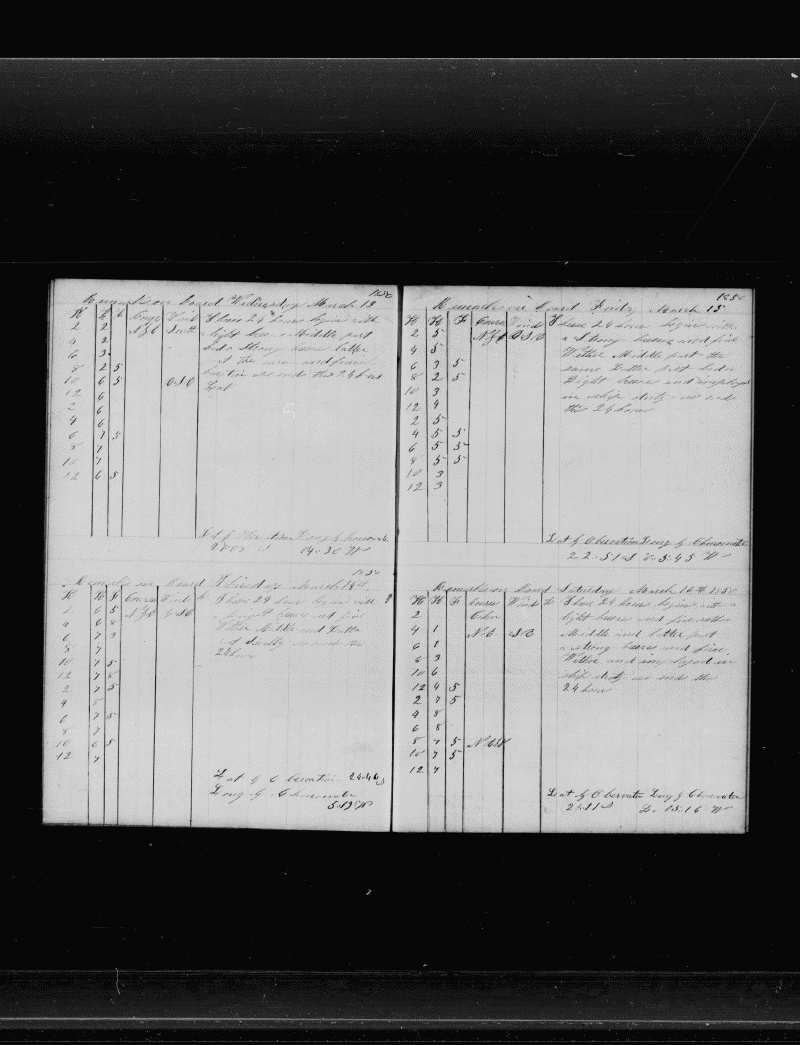 1850
Remarks on Board Wednesday March 13
H K F Course Wind These 24 hours begin with
2 2 N ʒ E South a light breese Middle part
4 2 a strong breese latter
6 3 part the same and fine
8 2 5 we ends this 24 hours
10 6 5 E S E
12 6
2 6
4 6
6 7 5
8 7
10 7
12 6 5
Lat by Observation Long by Chronometer
1850
Remarks on Board Thirsday March 14th
H K F Course Wind These 24 hours begin with
2 6 5 N ʒ E breese and fine
4 6 8 Wether Middle and Latter
6 7 3 part so ends the
8 7 24 hours
10 7 5
12 7 8
2 7 5
4 8
6 7 5
8 7
10 6 5
12 7
Lat by Observation 24.46 S
Long by Chronometer
5.19 W
1850
Remarks on Board Friday March 15
H K F Course Wind These 24 hours begin with
2 5 N ʒ E E S E a Strong breese and fine
4 5 Wether Middle part the
6 3 5 same Latter part
8 2 5 Light breese and imployed
10 3 in ships duty so ends
12 4 the 24 hours
2 5
4 5 5
6 5 5
8 5 5
10 3
12 3
Lat by Observation Long by Chronometer
22.51 S 5.45 W
Remarks on Board Saturday March 16th 1850
H K F Course Wind These 24 hours begin with a
2 Calm light breese and fine wether
4 1 N E S E Middle and latter part
6 1 a strong breese and fine
8 3 Wether and imployed in
10 6 ship duty so ends the
12 4 5 24 hours
2 7 5
4 8
6 8
8 7 5
10 7 5
12 7
Lat by Observation Long by Chronometer
21.11 S 13.16 W